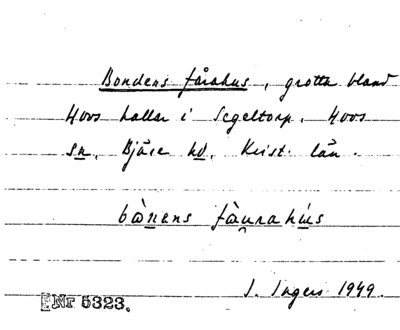 Bondens fårahus, grotta bland
Hovs hallar i Segeltorp. Hovs
sn. Bjäre hd. Krist. län.
bò̱nens fàu̯rahús
I. Ingers 1949.
Nr 5323.